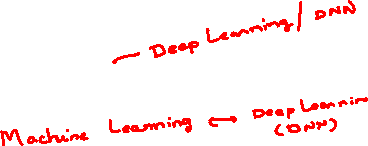 – Deep Learning / DNN
Machine Learning ↔ Deep Learnin
(DNN)